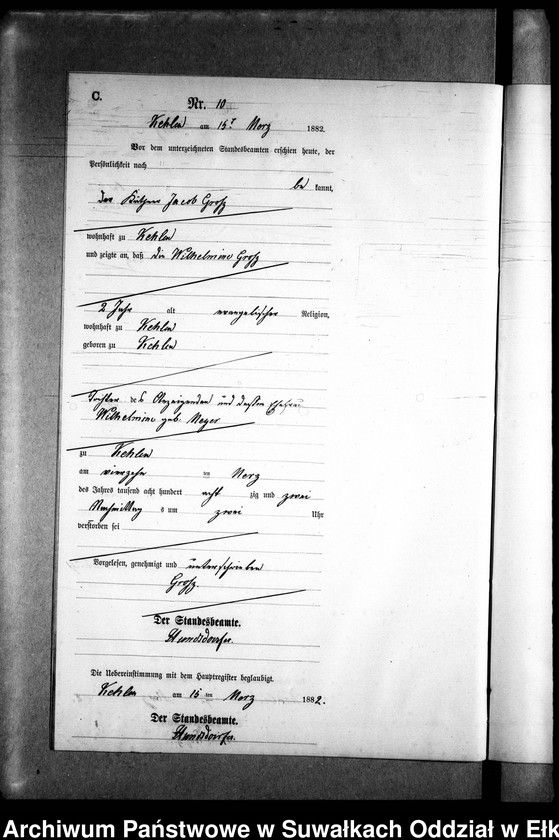 C.
Nr. 10
Kehlen am 15t Merz 1882.
Vor dem unterzeichneten Standesbeamten erschien heute, der
Persönlichkeit nach
be kannt,
der Jacob Groß
wohnhaft zu Kehlen
und zeigte an, daß die Wilhelmine Groß
2 Jahr alt evangelischer Religion,
wohnhaft zu Kehlen
geboren zu Kehlen
Tochter des Anzeigenden und dessen Ehefrau
Wilhelmine geb. Meyer
zu Kehlen
am vierzehn ten Merz
des Jahres tausend acht hundert acht zig und zwei
Nachmittag s um zwei Uhr
verstorben sei
Vorgelesen, genehmigt und unterschrieben
Groß.
Der Standesbeamte.
Die Uebereinstimmung mit dem Hauptregister beglaubigt.
Kehlen am 15 ten Merz 1882.
Der Standesbeamte.
Archiwum Państwowe w Suwałkach Oddział w Ełk